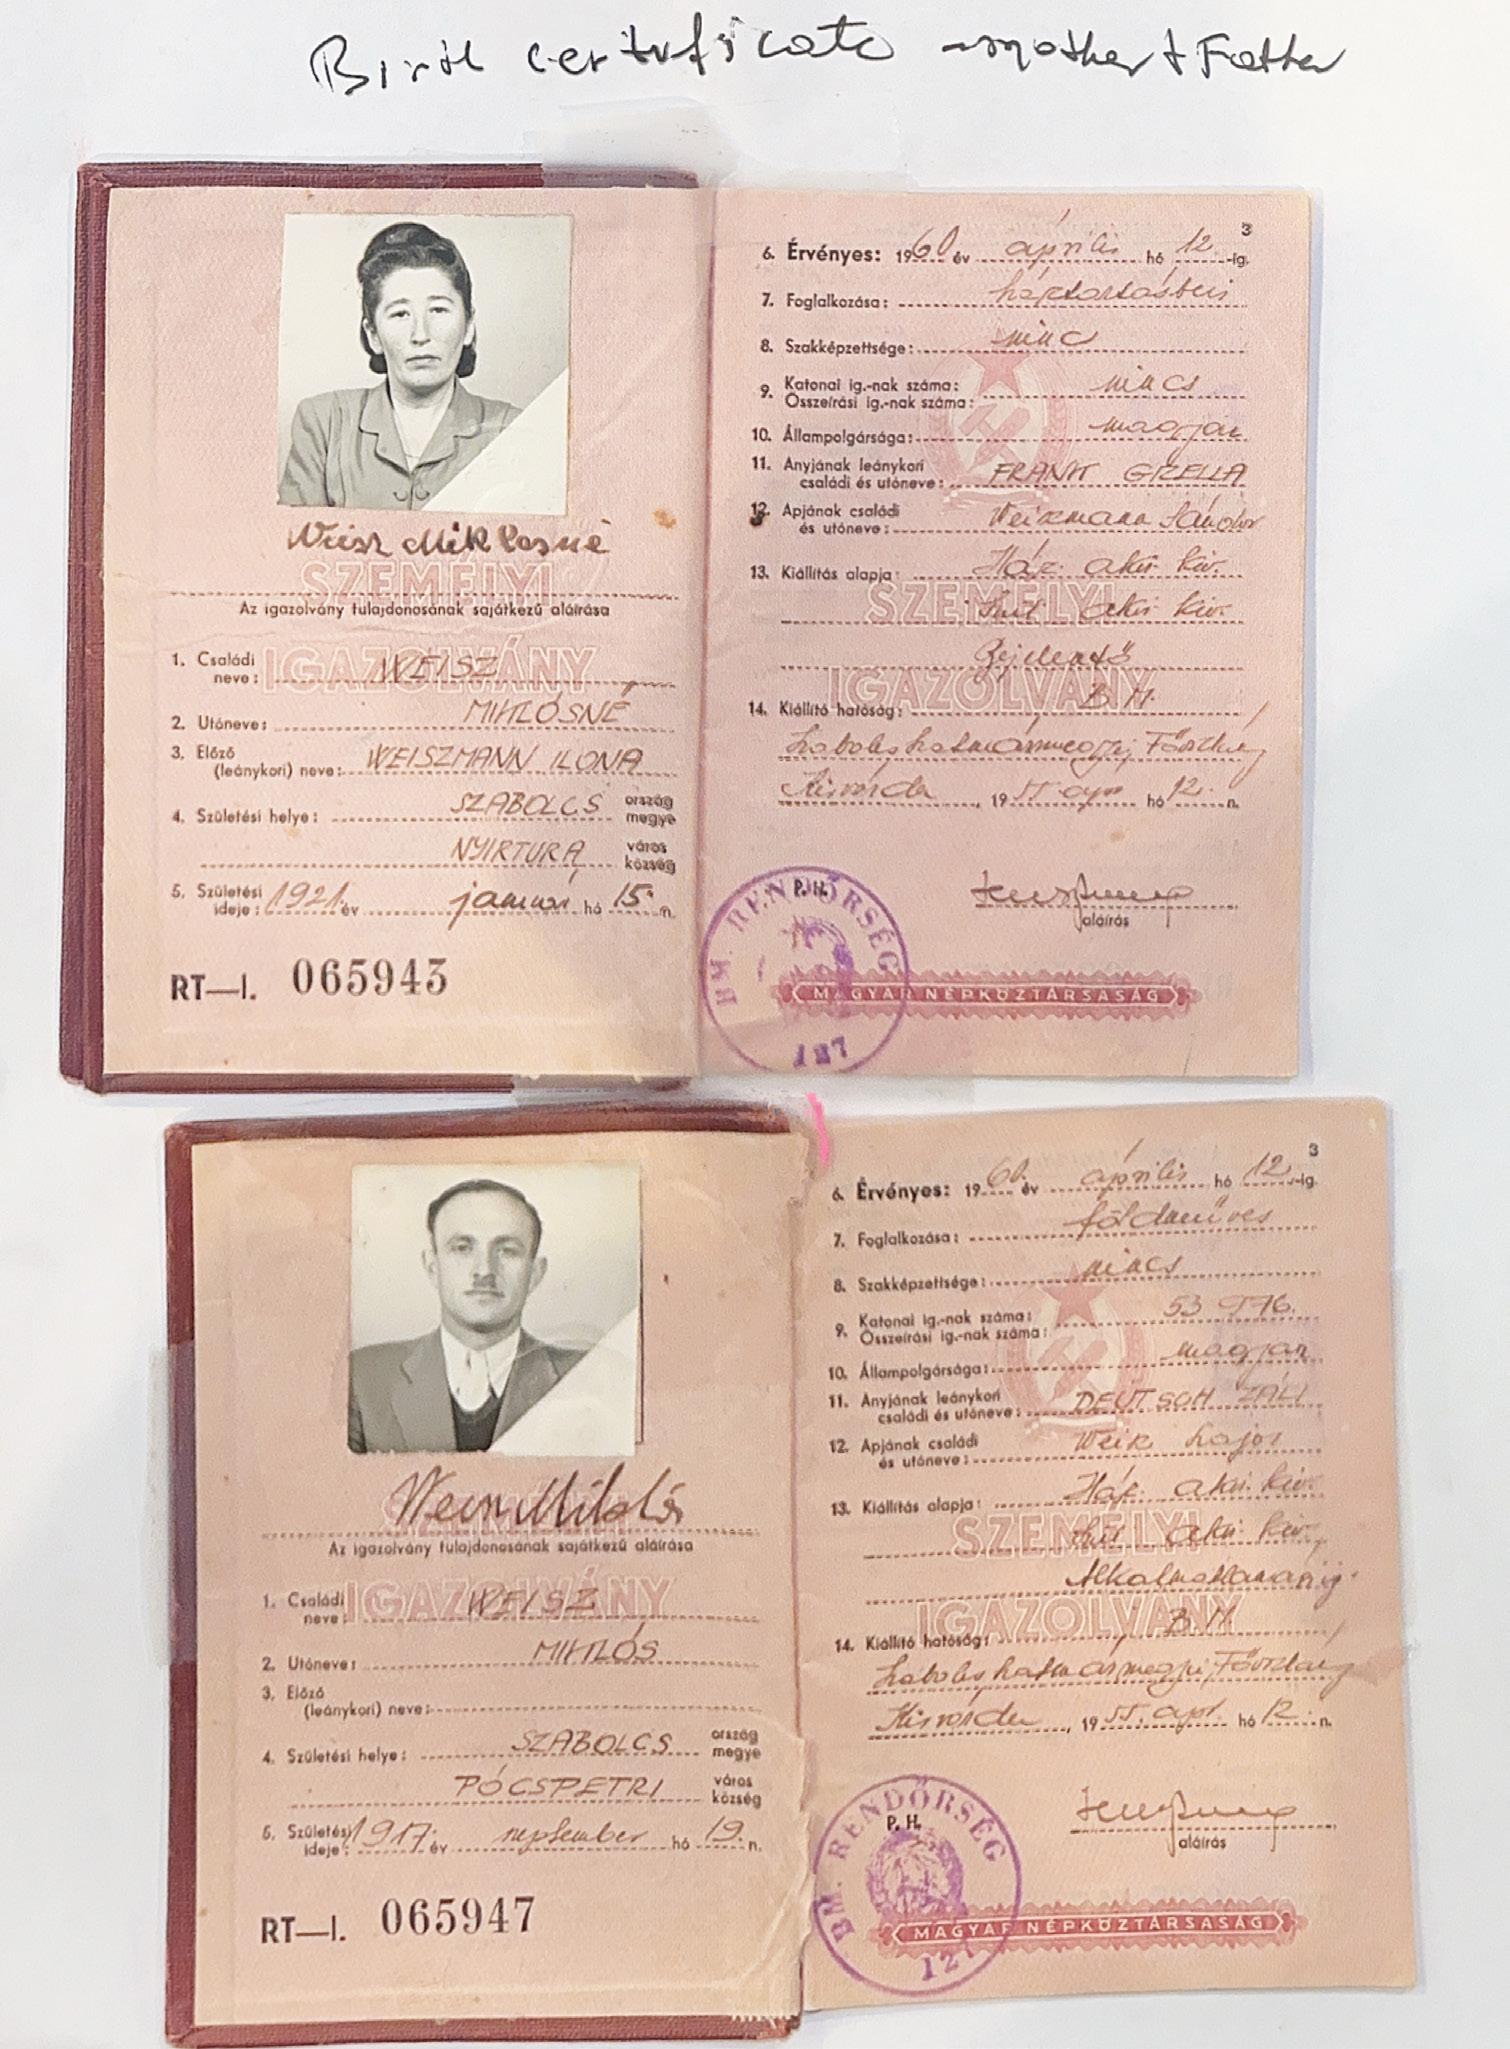 Birth certificate mother + Father
3
6. Érvényes: 1960 év április hó 12-ig.
7. Foglalkozása: háztartásbeli
8. Szakképzettsége: nincs
9. Katonai ig.-nak száma:
Összeírási ig.-nak száma: nincs
10. Állampolgársága: magyar
11. Anyjának leánykori
családi és utóneve: FRANK GIZELLA
12. Apjának családi
és utóneve: Weiszmann Sándor
13. Kiállítás alapja: Ház. akv. kiv.
Szül. akv. kiv.
Bejelentő
14. Kiállító hatóság: B.M.
Szabolcsszatmármegyei Főosztály
Kisvárda, 1955 apr hó 12. n.
P. H.
aláírás
BM. RENDŐRSÉG
127
MAGYAR NÉPKÖZTÁRSASÁG
Weisz Miklósné
SZEMÉLYI
Az igazolvány tulajdonosának sajátkezű aláírása
IGAZOLVÁNY
1. Családi
neve: WEISZ
2. Utóneve: MIKLÓSNÉ
3. Előző
(leánykori) neve: WEISZMANN ILONA
4. Születési helye: SZABOLCS ország
megye
NYIRTURA város
község
5. Születési
ideje: 1921. év január hó 15. n.
RT—I. 065943
SZEMÉLYI
IGAZOLVÁNY
3
6. Érvényes: 1960. év április hó 12-ig.
7. Foglalkozása: földműves
8. Szakképzettsége: nincs
9. Katonai ig.-nak száma: 53
Összeírási ig.-nak száma:
10. Állampolgársága: magyar
11. Anyjának leánykori
családi és utóneve: DEUTSCH ZÁLI
12. Apjának családi
és utóneve: Weisz Lajos
13. Kiállítás alapja: Ház. akv. kiv.
Szül. akv. kiv.
14. Kiállító hatóság: B.M.
Szabolcsszatmármegyei Főosztály
Kisvárda, 1955. apr. hó 12. n.
P. H.
aláírás
BM. RENDŐRSÉG
127
MAGYAR NÉPKÖZTÁRSASÁG
Weisz Miklós
Az igazolvány tulajdonosának sajátkezű aláírása
IGAZOLVÁNY
1. Családi
neve: WEISZ
2. Utóneve: MIKLÓS
3. Előző
(leánykori) neve:
4. Születési helye: SZABOLCS ország
megye
PÓCSPETRI város
község
5. Születési
ideje: 1917. év szeptember hó 19. n.
RT—I. 065947
SZEMÉLYI
IGAZOLVÁNY